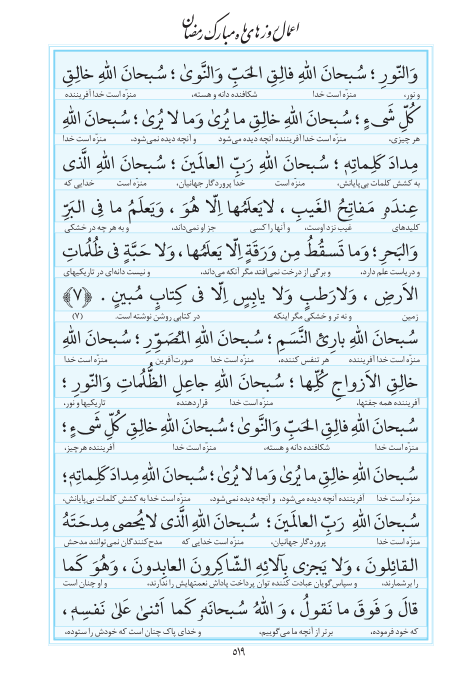 اعمال روزهای ماه مبارک رمضان
وَالنّورِ ؛ سُبحانَ اللهِ فالِقِ الحَبِّ وَالنَّویٰ ؛ سُبحانَ اللهِ خالِقِ
و نور، منزّه است خدا شکافنده دانه و هسته، منزّه است خدا آفریننده
کُلِّ شَیءٍ ؛ سُبحانَ اللهِ خالِقِ ما یُریٰ وَما لا یُریٰ ؛ سُبحانَ اللهِ
هر چیزی، منزّه است خدا آفریننده آنچه دیده می‌شود و آنچه دیده نمی‌شود، منزّه است خدا
مِدادَ کَلِماتِهِ ؛ سُبحانَ اللهِ رَبِّ العالَمینَ ؛ سُبحانَ اللهِ الَّذی
به کشش کلمات بی‌پایانش، منزّه است خدا پروردگار جهانیان، منزّه است خدایی که
عِندَهُ مَفاتِحُ الغَیبِ ، لایَعلَمُها اِلّا هُوَ ، وَیَعلَمُ ما فِی البَرِّ
کلیدهای غیب نزد اوست، و آنها را کسی جز او نمی‌داند، و به هر چه در خشکی
وَالبَحرِ ؛ وَما تَسقُطُ مِن وَرَقَةٍ اِلّا یَعلَمُها ، وَلا حَبَّةٍ فی ظُلُماتِ
و دریاست علم دارد، و برگی از درخت نمی‌افتد مگر آنکه می‌داند، و نیست دانه‌ای در تاریکیهای
الاَرضِ ، وَلارَطبٍ وَلا یابِسٍ اِلّا فی کِتابٍ مُبینٍ . ﴿۷﴾
زمین و نه تر و خشکی مگر اینکه در کتابی روشن نوشته است. (۷)
سُبحانَ اللهِ بارِئِ النَّسَمِ ؛ سُبحانَ اللهِ المُصَوِّرِ ؛ سُبحانَ اللهِ
منزّه است خدا آفریننده هر تنفس کننده، منزّه است خدا صورت‌آفرین و منزّه است خدا
خالِقِ الاَزواجِ کُلِّها ؛ سُبحانَ اللهِ جاعِلِ الظُّلُماتِ وَالنّورِ ؛
آفریننده همه جفتها، منزّه است خدا قراردهنده تاریکیها و نور،
سُبحانَ اللهِ فالِقِ الحَبِّ وَالنَّویٰ؛ سُبحانَ اللهِ خالِقِ کُلِّ شَیءٍ ؛
منزّه است خدا شکافنده دانه و هسته، منزّه است خدا آفریننده هرچیز،
سُبحانَ اللهِ خالِقِ ما یُریٰ وَما لا یُریٰ ؛ سُبحانَ اللهِ مِدادَ کَلِماتِهِ؛
منزّه است خدا آفریننده آنچه دیده می‌شود، و آنچه دیده نمی‌شود، منزّه است خدا به کشش کلمات بی‌پایانش،
سُبحانَ اللهِ رَبِّ العالَمینَ؛ سُبحانَ اللهِ الَّذی لایُحصی مِدحَتَهُ
منزّه است خدا پروردگار جهانیان، منزّه است خدایی که مدح‌کنندگان نمی‌توانند مدحش
القائِلونَ ، وَلا یَجزی بِآلائِهِ الشّاکِرونَ العابِدونَ ، وَهُوَ کَما
را برشمارند، و سپاس‌گویان عبادت کننده توان پرداخت پاداش نعمتهایش را ندارند، و او چنان است
قالَ وَ فَوقَ ما نَقولُ ، وَ اللهُ سُبحانَهُ کَما اَثنیٰ عَلیٰ نَفسِهِ ،
که خود فرموده، برتر از آنچه ما می‌گوییم، و خدای پاک چنان است که خودش را ستوده،
۵۱۹